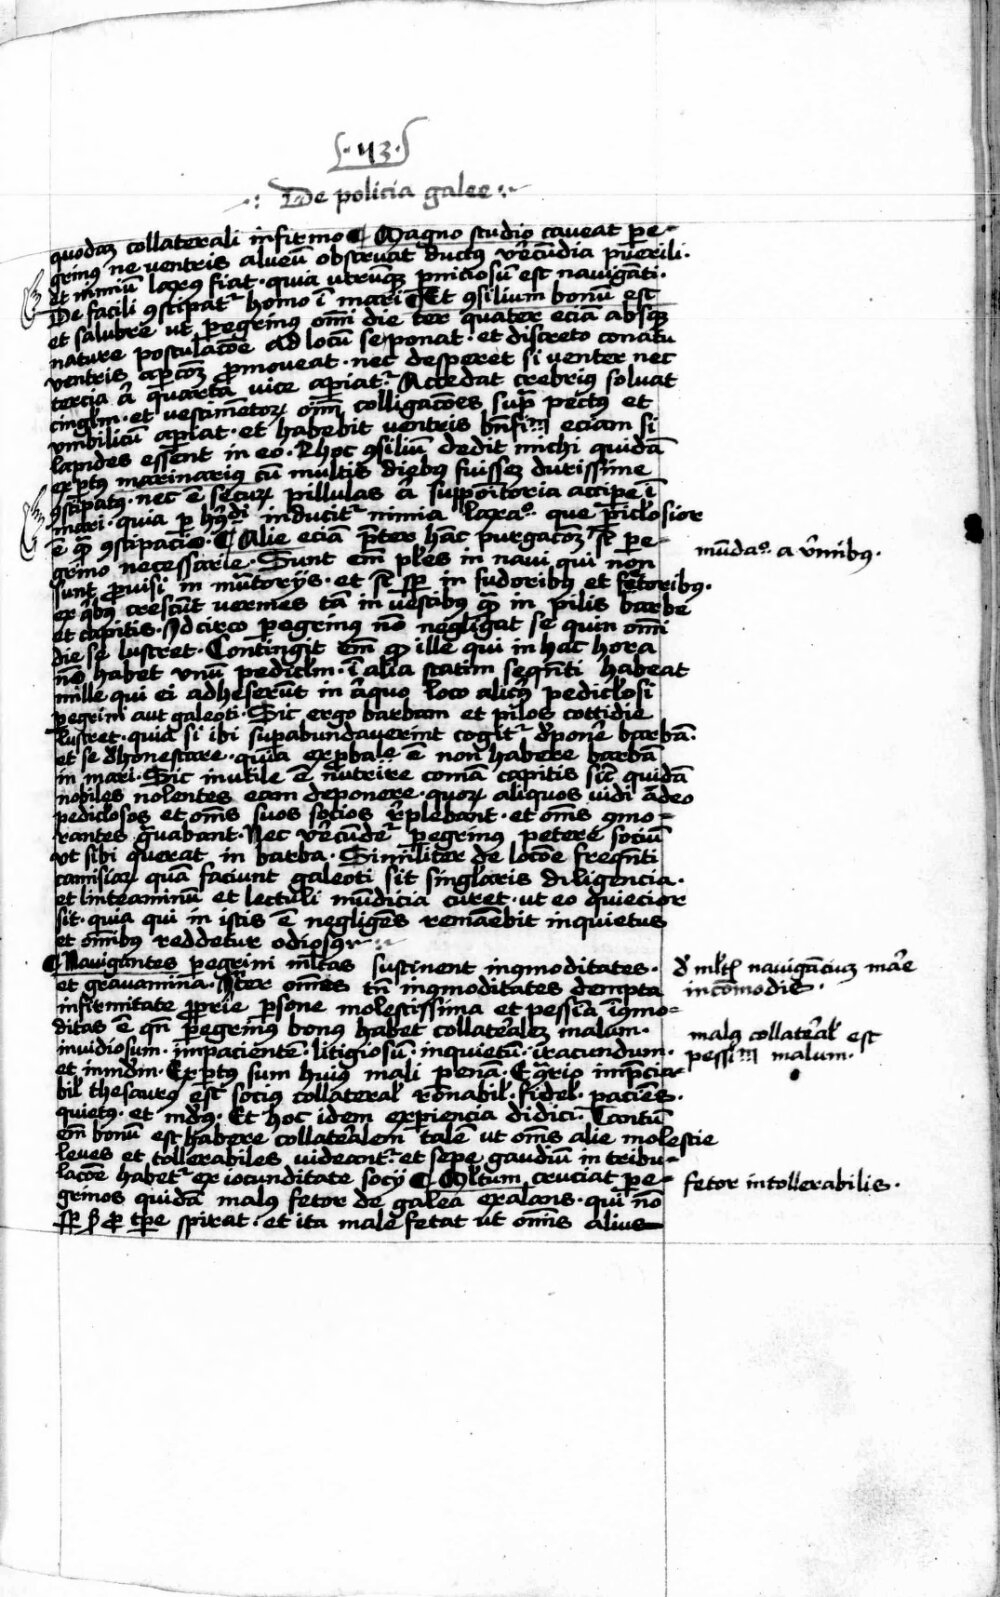 · 43 ·
De policia galee
quodam collaterali infirmo ¶ Magno studio caveat pe-
grinus ne ventris alveum observat ductus verecundia puerili·
et nimium laxus fiat· quia utrumque pnitiosum est naviganti·
De facili ɔstipatur homo in mari ¶ Et ɔsilium bonum est
et salubre ut peregrinus omni die ter quater ecia absque
nature postulacone ad locum se ponat· et discreto conatu
ventris apcom promoveat· nec desperet si venter nec
tercia aut quarta vice apiatur· Accedat crebrius solvat
cinglm· et vestimentorum omnes colligacones supra pectus et
umbilicum apiat· et habebit ventris bnfim eciam si
lapides essent in eo· Et hoc ɔsilium dedit michi quidam
expertus marinarius cum multis diebus fuissem durissime
ɔstipatus· nec est securum pillulas aut suppositoria accipe in
mari· quia per hmodi inducitur nimia laxao· que piclosior
est quam ɔstipacio· ¶ Alie eciam preter hanc purgacom sunt pe-
grino necessarie· Sunt enim plures in navi qui non
sunt provisi in mutorijs· et sunt semper in sudoribus et fetoribus·
ex quibus crescunt vermes tam in vestibus quam in pilis barbe
et capitis· Idcirco peregrinus non negligat se quin omni
die se lustret· Contingit enim quod ille qui in hac hora
non habet unum pediclm· in alia statim sequenti habeat
mille qui ei adheserunt in aliquo loco alicuius pediclosi
pegrini aut galeoti· Sic ergo barbam et pilos cottidie
lustret· quia si ibi supabundaverint cogitur deponere barbam·
et se dehonestare· quia exprobale est non habere barbam
in mari· Sic inutile est nutrire comam capitis sicut quidam
nobiles nolentes eam deponere· quorum aliquos vidi adeo
pediclosos et omnes suos socios replebant· et omnes ɔmo-
rantes gravabant· Nec verecundetur peregrinus petere socium
ut sibi querat in barba· Similiter de locone frequenti
camisiarum quam faciunt galeoti sit singlaris diligencia·
et linteaminum et lectuli mundicia curet· ut eo quiecior
sit· quia qui in istis est negligens remanebit inquietus
et omnibus reddetur odiosus
¶ Navigantes peregrini multas sustinent inɔmoditates·
et gravamina· Inter omnes tamen inɔmoditates dempta
infirmitate proprie persone molestissima et pessima inɔmo-
ditas est quando peregrinus bonus habet collateralem malum·
invidiosum· impacientem· litigiosum· inquietum· iracundum·
et inmundm· Expertus sum huius mali penam· E contrario impcia-
bil thesaurus est socius collateral ronabil· fidel· paciens·
quietus· et mundus· Et hoc idem experiencia didici· Tantum
enim bonum est habere collateralem talem ut omnes alie molestie
leves et tollerabiles videantur· et sepe gaudium in tribu-
lacone habetur ex iocunditate socij ¶ Multum cruciat pe-
grinos quidam malus fetor de galea exalans· qui non
semper sed pro tempore spirat· et ita male fetat ut omnis alius
mundao· a vermibus·
de multis navigancium mare
incomodis·
malus collateral est
pessim malum·
fetor intollerabilis·